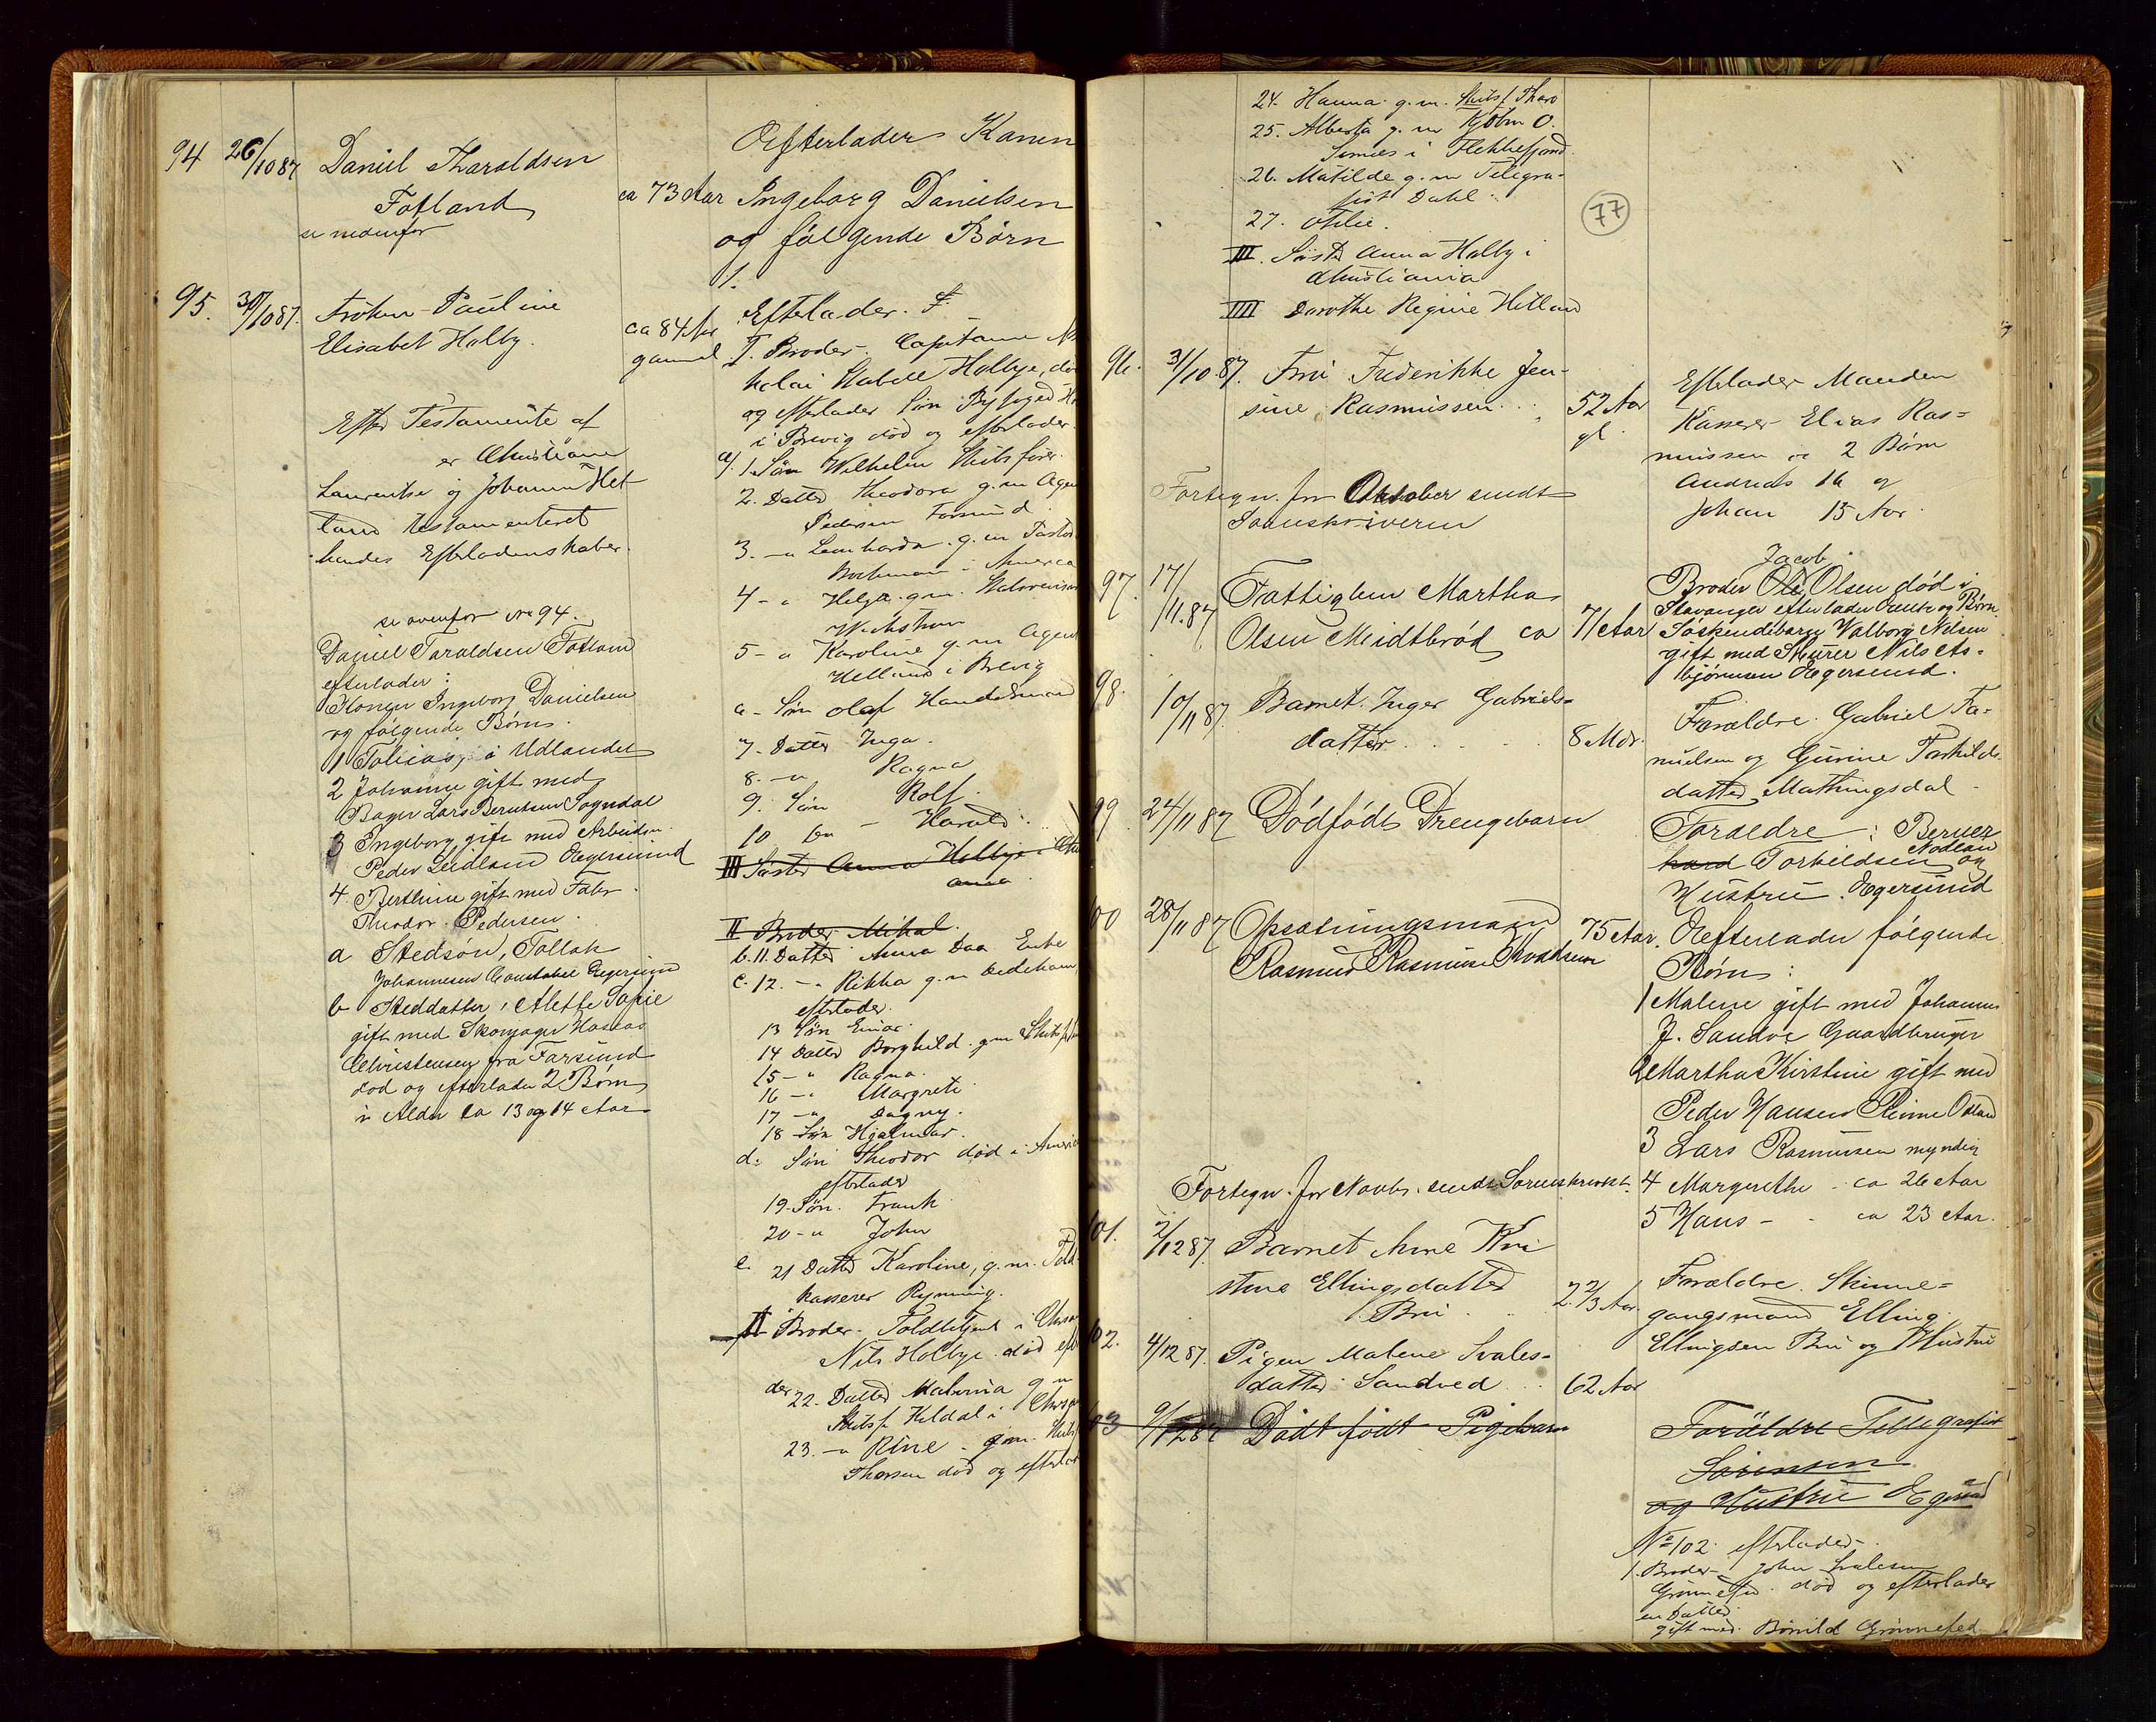 94 26/10 87 Daniel Tharaldsen
Fotland
se nedenfor
ca 73 Aar
Oefterlader Konen
Ingeborg Danielsen
og følgende Børn
1.
95. 31/10 87. Frøken Pauline
Elisabet Holby.
ca 84 Aar
gammel
Efter Testamente af
er Christiane
Laurentse og Johanne Het
land testamenteret
hendes Efterladenskaber.
se ovenfor No 94.
Daniel Taraldsen Fotland
efterlader:
Konen Ingeborg Danielsen
og følgende Børn.
1 Tobias, i Udlandet
2 Johanne gift med
Bager Lars Berntsen Sogndal
3 Ingeborg gift med Arbeidsm.
Peder Leidland Egersund
4. Berthine gift med Fabr.
Theodor Pedersen.
a Stedsøn, Tollak
Johannesen Constabel Egersund
b Steddatter, Alette Sofie
gift med Skomager
Christensen fra Farsund
død og efterlader 2 Børn
i Alder ca 13 og 14 Aar
Efterlader.
I. Broder. Capitaine Ni
kolai Stabell Holbye, død
og efterlader Søn Byfoged
i Brevig død og efterlader
a/ 1. Søn Wilhelm Skibsfører.
2. Datter Theodora g.m Agen
Pedersen Farsund
3. -"- Leonharda g.m Pastor
i America
4 -"- Helga g.m.
5 -"- Karoline g.m Agent
Helland i Brevig
6 - Søn Olaf Handelsmand
7- Datter Inga.
8. -"- Ragna
9. Søn Rolf.
10 Do - Harald.
III Søster Anna Holbye i
II Broder Mikal.
b. 11. Datter Anna Daa Enke
c. 12. -"- Rikka g.m
efterlader.
13 Søn Einar.
14 Datter Borghild g.m Skibsf
15 -"- Ragna.
16 -"- Margrete
17 -"- Dagny.
18 Søn Hjalmar.
d: Søn Theodor død i Ameri
efterlader
19. Søn. Frank
20 -"- John
e. 21 Datter Karoline, g.m. Told
kasserer Ryming.
II Broder. Toldbetjent i Chrs
Nils Holbye død efter
der 22. Datter Malvina g m
Skibsf. Keldal i Chrs
23. -"- Rine g.m. Skibs
Thorsen død og efterlad
24. Hanna g.m. Skibsf. Tharo
25. Alberta g. m Kjøbm O.
i Flekkefjord.
26. Matilde g. m Telegra-
fist Dahl.
27. Otilie.
III. Søster Anna Holby i
Christiania
IIII Dorothe Regine Hetland
77
96. 31/10 87. Fru Frederikke Jen-
sine Rasmussen
52 Aar
gl.
Efterlader Manden
Kasserer Elias Ras=
mussen og 2 Børn
Andreas 16 og
Johan 15 Aar.
Fortegn. for Oktober sendt
Sorenskriveren
97. 17/11.87 Fattiglem Martha
Olsen Meidtbrød ca 71 Aar
Jacob
Broder Ole Olsen død i
Stavanger efterlader Enke og Børn
Søskendebarn Valborg Nilsen
gift med Skurer Nils As-
bjørnsen Egersund.
98. 10/11 87. Barnet Inger Gabriels=
datter 8 Mdr.
Forældre. Gabriel Ta-
nielsen og Gurine Torkilds
datter Mathingsdal
99. 24/11 87 Dødfødt Drengebarn
Foraeldre: Berner
hard Torkildsen Nodland og
Hustru. Egersund
100 28/11 87 Opsætningsmand
Rasmus Rasmusen
75 Aar.
Oefterlader følgende
Børn:
1 Malene gift med Johannes
J. Sandve Gaardbruger
2 Martha Kirstine gift med
Peder Hansen
3 Lars Rasmussen myndig
4 Margrethe - ca 26 Aar
5 Hans - ca 23 Aar.
Fortegn. for Novbr. sendt Sorenskriver.
101. 2/12 87. Barnet Anne Kri
stine Ellingsdatter
Bru
2 2/3 Aar.
Forældre. Skinne=
gangsmand Elling
Ellingsen Bru og Hustru
102. 4/12 87. Pigen Malene Svales=
datter Sandved 62 Aar
103 9/12 87 Dødt født Pigebarn
Foräldre Tellegrafist
Sørensen
og Hustru Egersund
No 102. efterlader.
1. Broder John Svalesen
Grønnefed død og efterlader
en Datter
gift med. Grønnefed